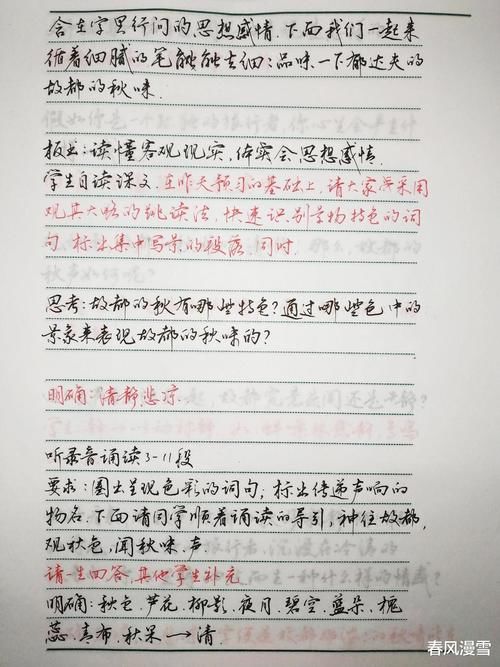 含在字里行间的思想感情.下面我们一起来
循着细腻的笔触能去细细品味一下郁达夫的
故都的秋味.
板书:读懂客观现实,体会思想感情.
学生自读课文.在昨天预习的基础上,请大家采用
观其大略的跳读法,快速识别景物特色的词
句,标出集中写景的段落.同时.
思考:故都的秋有哪些特色?通过哪些色中的
景象来表现故都的秋味的?
明确:清静悲凉.
听录音诵读3-11段
要求:圈出呈现色彩的词句,标出传递声响的
物名.下面请同学顺着诵读的导引,神往故都,
观秋色,闻秋味.声
请一生回答,其他学生补充
明确:秋色.芦花,柳影.夜月.碧空.蓝朵,槐
蕊.青布.秋果→清.
春风漫雪